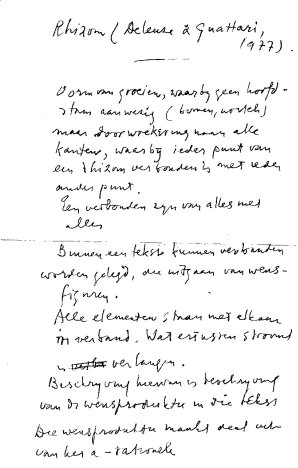 Rhizom (Deleuze & Guattari,
1977).
Vorm van groeien, waarbij geen hoofd-
stam aanwezig (bomen, wortels)
maar doorwoekering naar alle
kanten, waarbij ieder punt van
een rhizom verbonden is met ieder
ander punt.
Een verbonden zijn van alles met
alles
Binnen een tekst kunnen verbanden
worden gelegd, die uitgaan van wens-
figuren.
Alle elementen staan met elkaar
in verband. Wat ertussen stroomt
is verlangen.
Beschrijving hiervan is beschrijving
van de wensproduktie in die tekst
Die wensproduktie maakt deel uit
van het a-rationele